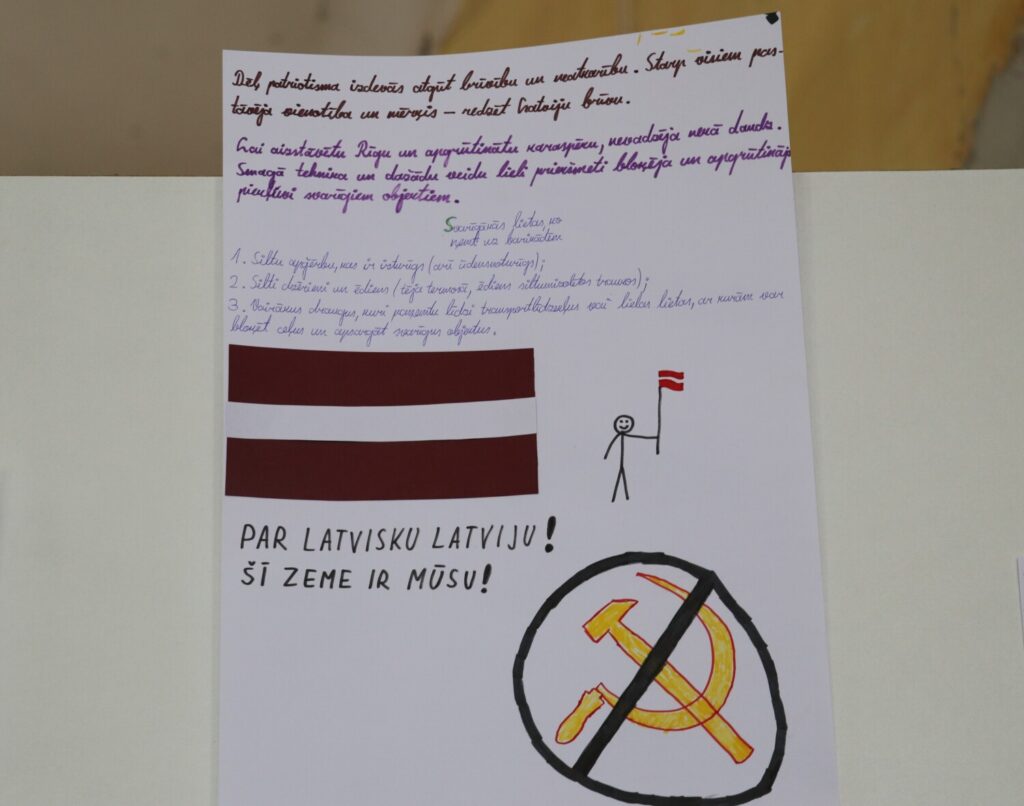 Dēļ patriotisma izdevās atgūt brīvību un neatkarību. Starp visiem pas-
tāvēja vienotība un mērķis – redzēt Latviju brīvu.
Lai aizstāvētu Rīgu un apgrūtinātu karaspēku, nevadzēja nekā daudz.
Smagā tehnika un dažādu veidu lieli priekšmeti bloķēja un apgrūtināja
piekļuvi svarīgiem objektiem.
Svarīgākās lietas, ko
ņemt uz barikādēm
1. Siltu apģērbu, kas ir izturīgs (arī ūdensnoturīgs);
2. Silti dzērieni un ēdiens (tēja termosā, ēdiens siltumizolētos traukos);
3. Vairākus draugus, kuri paņemtu līdzi transportlīdzekļus vai lielas lietas, ar kurām var
bloķēt ceļus un apsargāt svarīgus objektus.
PAR LATVISKU LATVIJU!
ŠĪ ZEME IR MŪSU!